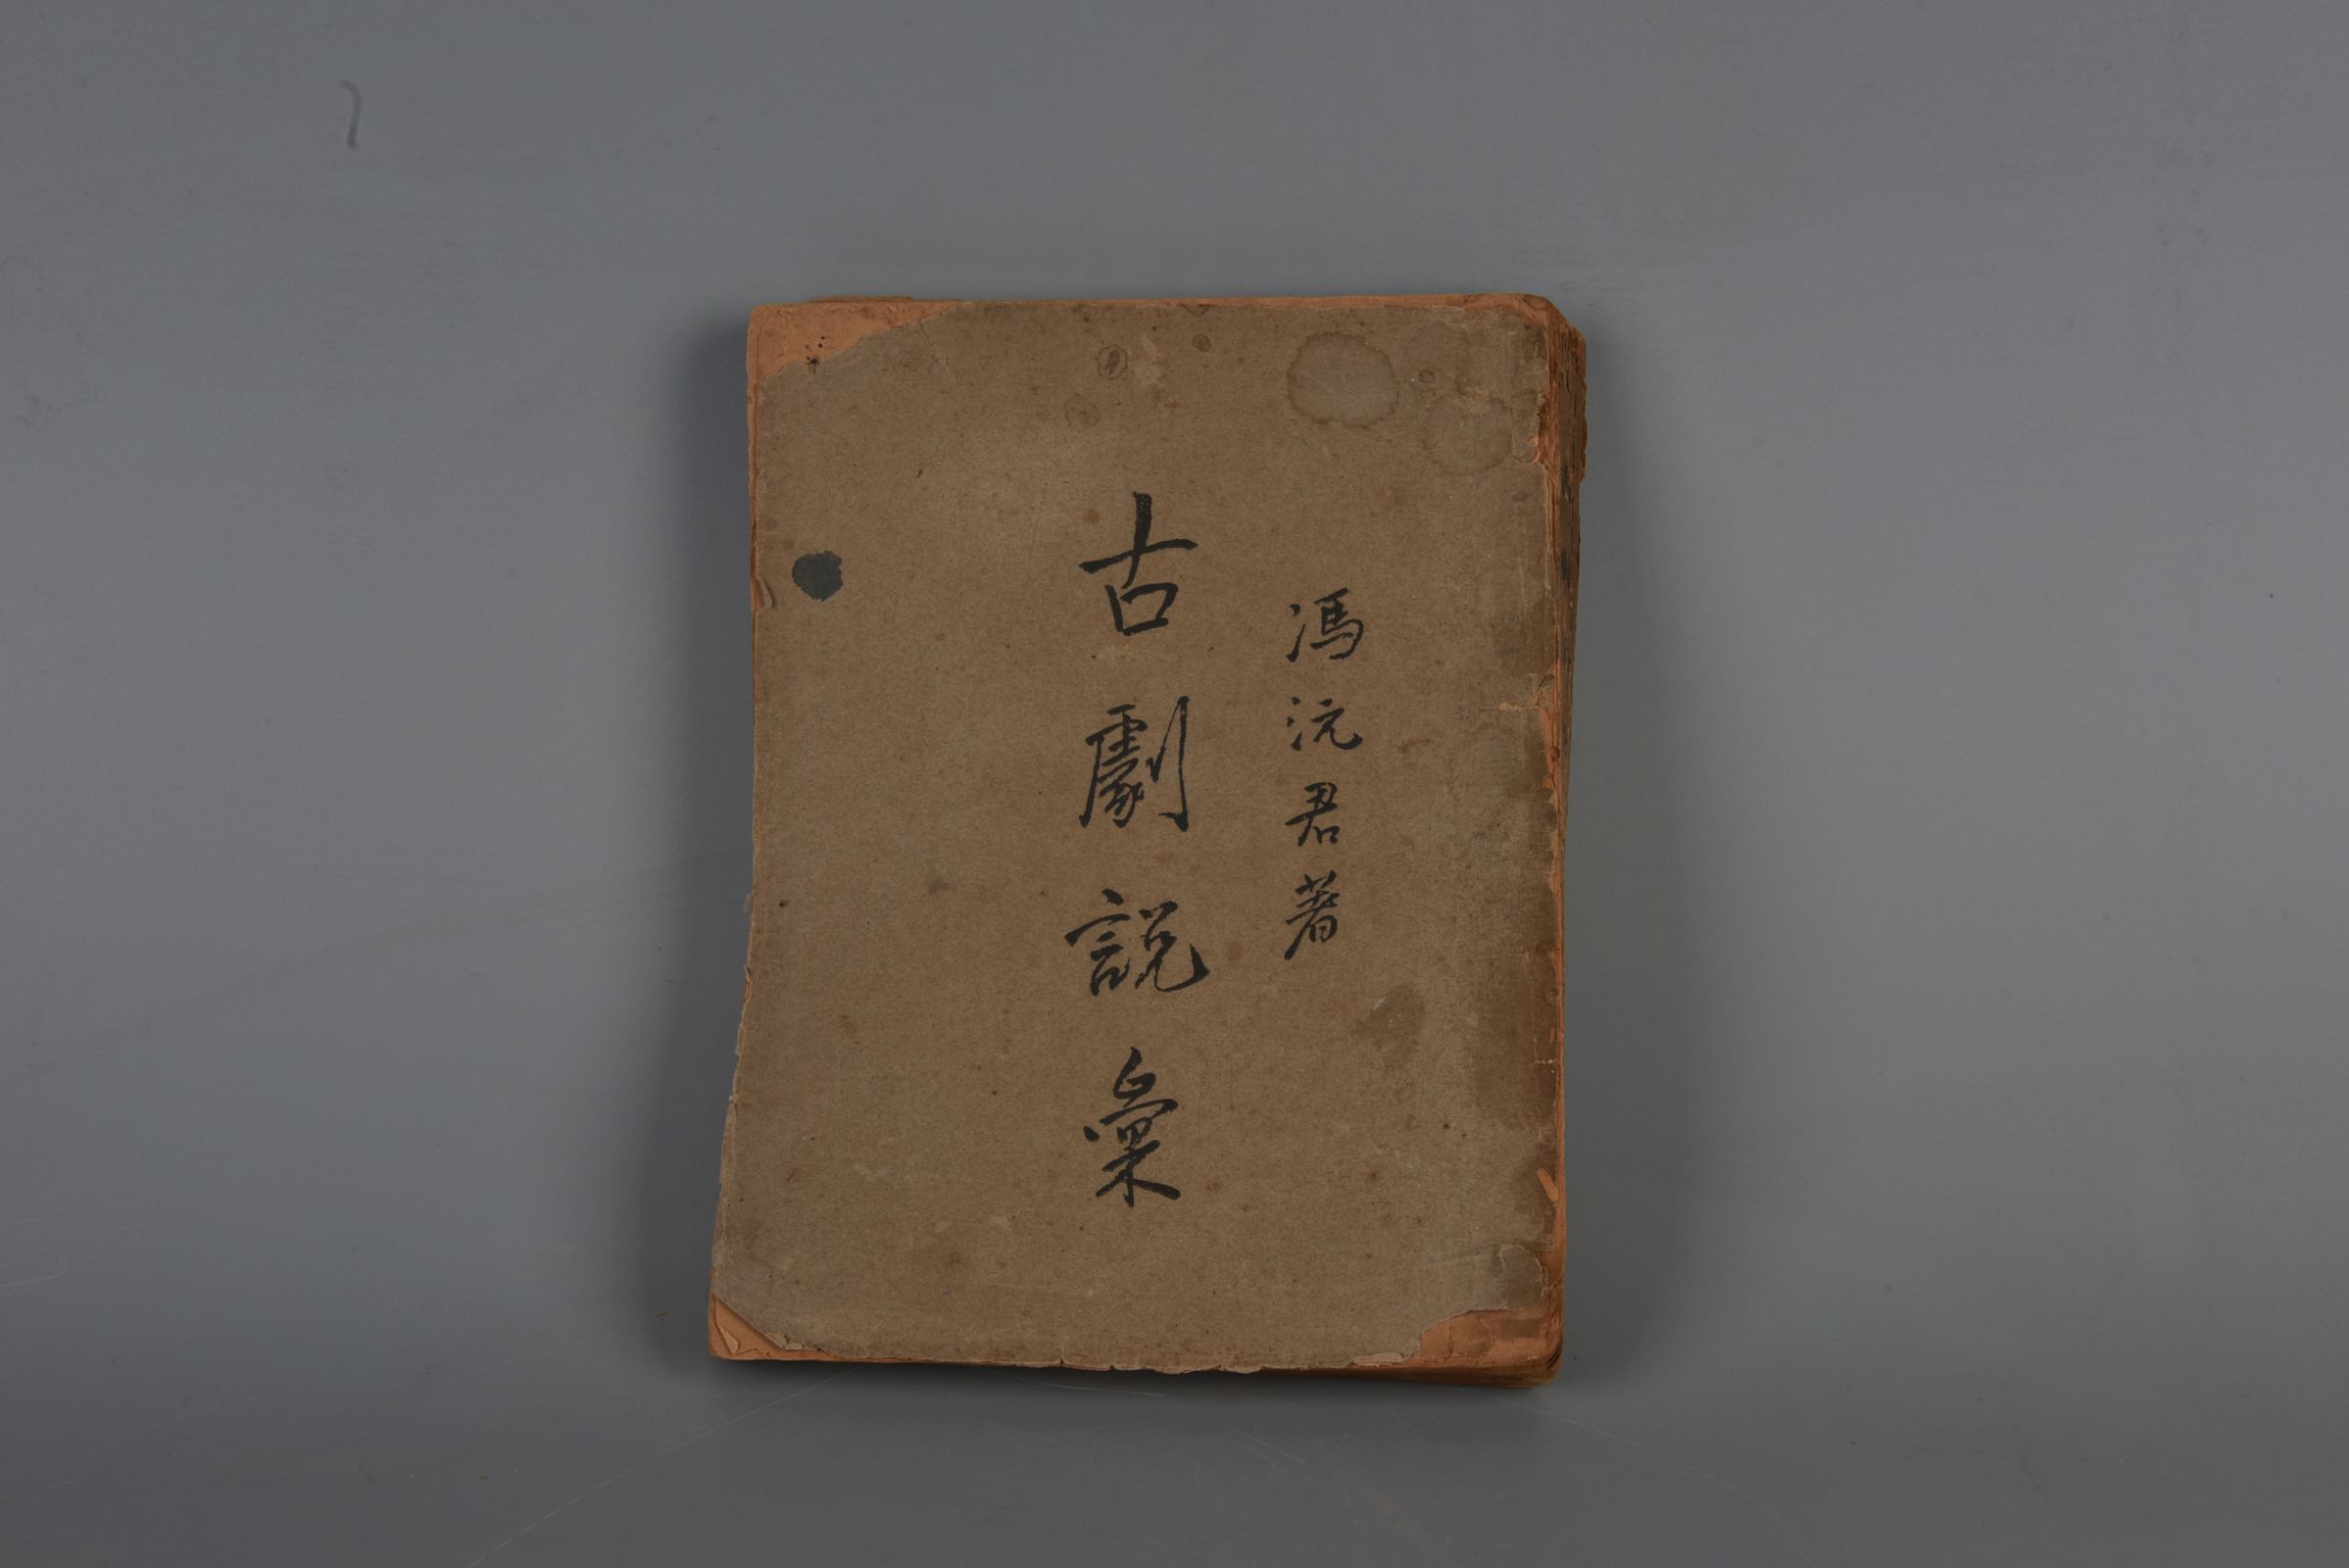 馮沅君著
古劇説彙